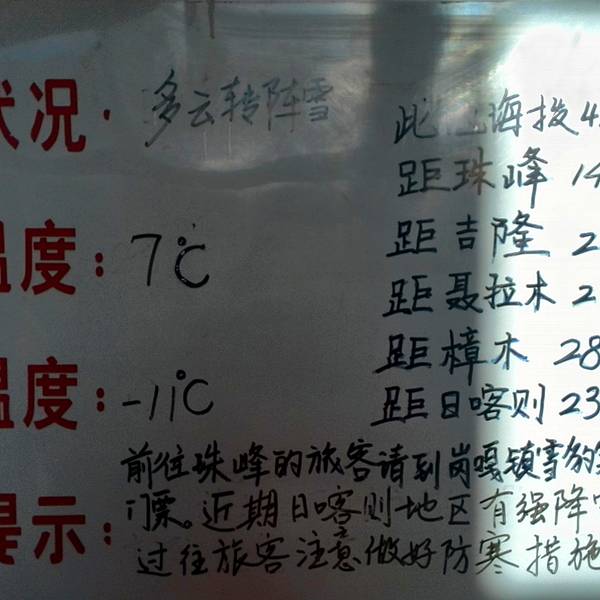 状况: 多云转阵雪
此 海拔4
距珠峰 14
温度: 7℃
距吉隆 2
距聂拉木 2
距樟木 28
温度: -11℃
距日喀则 23
前往珠峰的旅客请到岗嘎镇雪豹
提示: 门票。近期日喀则地区有强降
过往旅客注意做好防寒措施